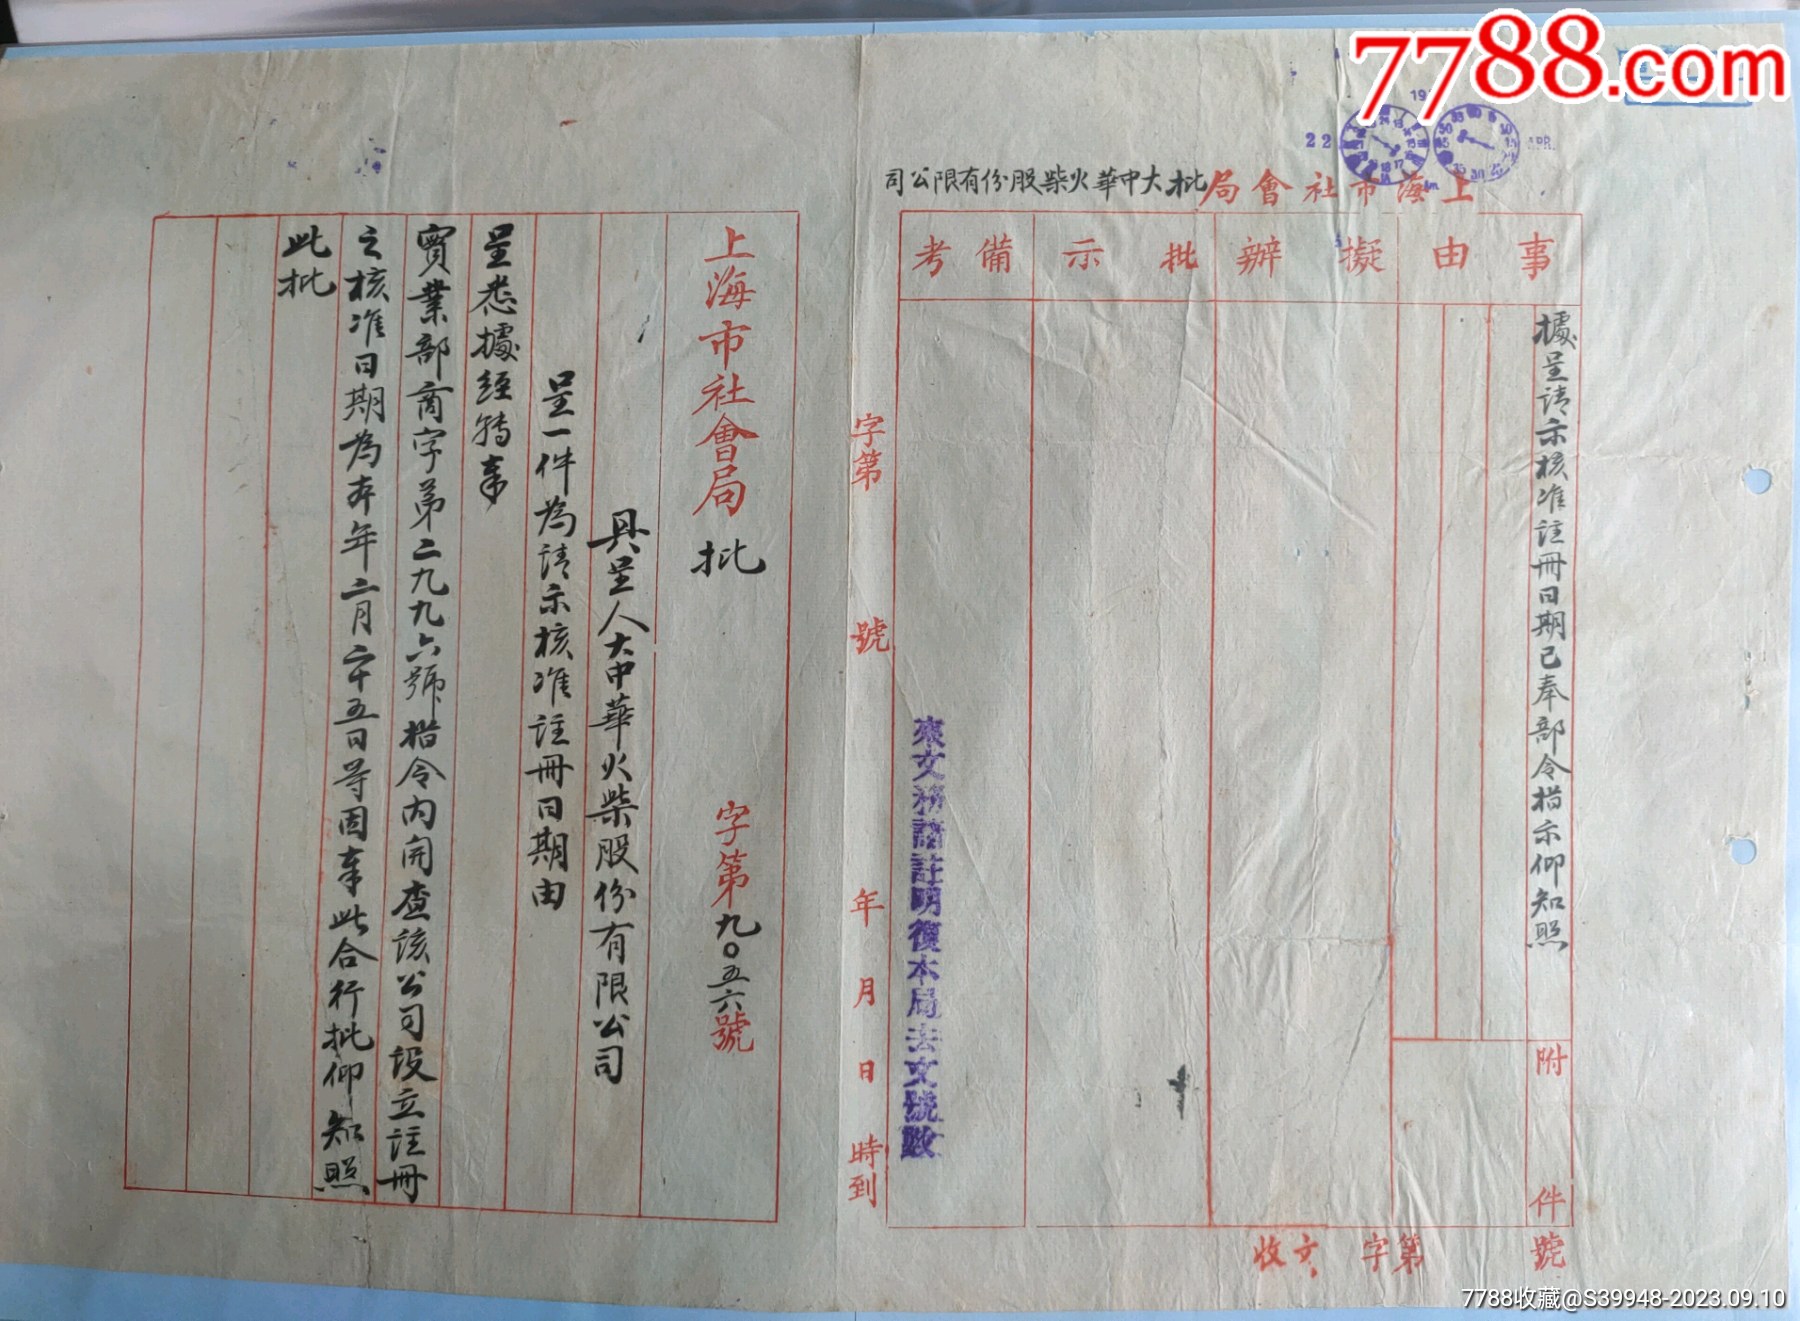 7788.com
22
APR.
上海市社會局批大中華火柴股份有限公司
事由
擬辦
批示
備考
據呈請示核准註冊日期已奉部令指示仰知照
附件
收文 字第 號
來文務請註明復本局去文號數
字第 號 年 月 日 時到
上海市社會局批 字第九〇五六號
具呈人大中華火柴股份有限公司
呈一件為請示核准註冊日期由
呈悉據經轉奉
實業部商字第二九九六號指令內開查該公司設立註冊
之核准日期為本年二月二十五日等因奉此合行批仰知照
此批
7788收藏@S39948-2023.09.10